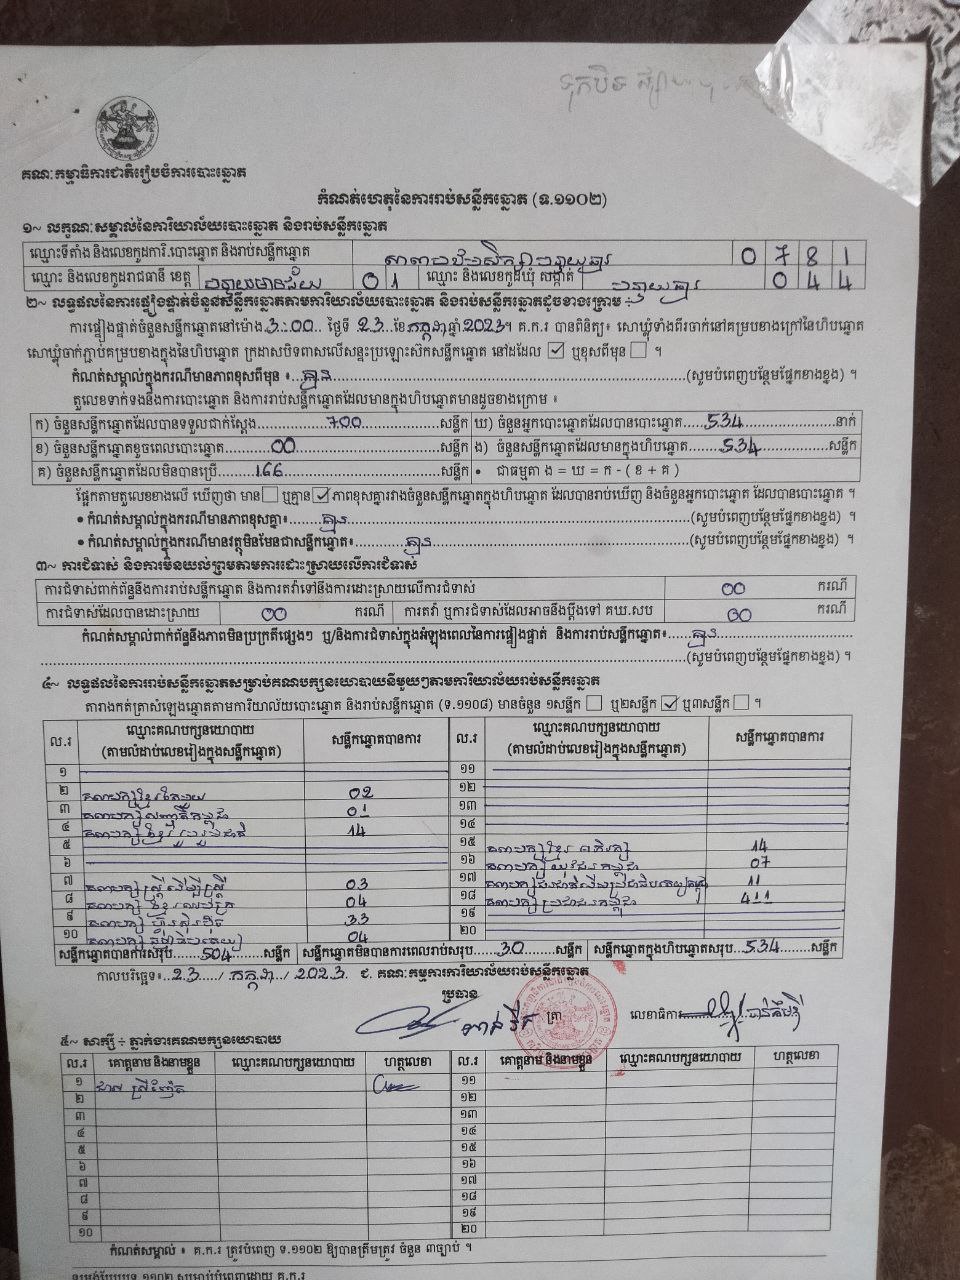 ទុកបិទ ផ្សាយ
គណៈកម្មាធិការជាតិរៀបចំការបោះឆ្នោត
កំណត់ហេតុនៃការរាប់សន្លឹកឆ្នោត (ទ.១១០២)
១~ លក្ខណៈសម្គាល់នៃការិយាល័យបោះឆ្នោត និងរាប់សន្លឹកឆ្នោត
ឈ្មោះទីតាំង និងលេខកូដការិ.បោះឆ្នោត និងរាប់សន្លឹកឆ្នោត 0 7 8 1
ឈ្មោះ និងលេខកូដរាជធានី ខេត្ត បន្ទាយមានជ័យ 0 1 ឈ្មោះ និងលេខកូដឃុំ សង្កាត់ បន្ទាយឆ្មារ 0 4 4
២~ លទ្ធផលនៃការផ្ទៀងផ្ទាត់ចំនួនសន្លឹកឆ្នោតតាមការិយាល័យបោះឆ្នោត និងរាប់សន្លឹកឆ្នោតដូចខាងក្រោម ÷
ការផ្ទៀងផ្ទាត់ចំនួនសន្លឹកឆ្នោតនៅម៉ោង 3:00 ថ្ងៃទី 23 ខែ កក្កដា ឆ្នាំ 2023។ គ.ក.រ បានពិនិត្យ៖ សោឃ្លុំទាំងពីរចាក់នៅគម្របខាងក្រៅនៃហិបឆ្នោត
សោឃ្លុំចាក់ភ្ជាប់គម្របខាងក្នុងនៃហិបឆ្នោត ក្រដាសបិទពាសលើសន្ទះប្រឡោះស៊កសន្លឹកឆ្នោត នៅដដែល ☑ ឬខុសពីមុន ☐ ។
កំណត់សម្គាល់ក្នុងករណីមានភាពខុសពីមុន ៖ គ្មាន (សូមបំពេញបន្ថែមផ្នែកខាងខ្នង) ។
តួលេខទាក់ទងនឹងការបោះឆ្នោត និងការរាប់សន្លឹកឆ្នោតដែលមានក្នុងហិបឆ្នោតមានដូចខាងក្រោម ៖
ក) ចំនួនសន្លឹកឆ្នោតដែលបានទទួលជាក់ស្ដែង 700 សន្លឹក ឃ) ចំនួនអ្នកបោះឆ្នោតដែលបានបោះឆ្នោត 534 នាក់
ខ) ចំនួនសន្លឹកឆ្នោតខូចពេលបោះឆ្នោត 00 សន្លឹក ង) ចំនួនសន្លឹកឆ្នោតដែលមានក្នុងហិបឆ្នោត 534 សន្លឹក
គ) ចំនួនសន្លឹកឆ្នោតដែលមិនបានប្រើ 166 សន្លឹក • ជាធម្មតា ង = ឃ = ក - ( ខ + គ )
ផ្អែកតាមតួលេខខាងលើ ឃើញថា មាន ☐ ឬគ្មាន ☑ ភាពខុសគ្នារវាងចំនួនសន្លឹកឆ្នោតក្នុងហិបឆ្នោត ដែលបានរាប់ឃើញ និងចំនួនអ្នកបោះឆ្នោត ដែលបានបោះឆ្នោត ។
• កំណត់សម្គាល់ក្នុងករណីមានភាពខុសគ្នា៖ គ្មាន (សូមបំពេញបន្ថែមផ្នែកខាងខ្នង) ។
• កំណត់សម្គាល់ក្នុងករណីមានវត្ថុមិនមែនជាសន្លឹកឆ្នោត៖ គ្មាន (សូមបំពេញបន្ថែមផ្នែកខាងខ្នង) ។
៣~ ការជំទាស់ និងការមិនយល់ព្រមតាមការដោះស្រាយលើការជំទាស់
ការជំទាស់ពាក់ព័ន្ធនឹងការរាប់សន្លឹកឆ្នោត និងការតវ៉ាទៅនឹងការដោះស្រាយលើការជំទាស់ 00 ករណី
ការជំទាស់ដែលបានដោះស្រាយ 00 ករណី ការតវ៉ា ឬការជំទាស់ដែលអាចនឹងប្ដឹងទៅ គឃ.សប 00 ករណី
កំណត់សម្គាល់ពាក់ព័ន្ធនឹងភាពមិនប្រក្រតីផ្សេងៗ ឬ/និងការជំទាស់ក្នុងអំឡុងពេលនៃការផ្ទៀងផ្ទាត់ និងការរាប់សន្លឹកឆ្នោត៖ គ្មាន
(សូមបំពេញបន្ថែមផ្នែកខាងខ្នង) ។
៤~ លទ្ធផលនៃការរាប់សន្លឹកឆ្នោតសម្រាប់គណបក្សនយោបាយនីមួយៗតាមការិយាល័យរាប់សន្លឹកឆ្នោត
តារាងកត់ត្រាសំឡេងឆ្នោតតាមការិយាល័យបោះឆ្នោត និងរាប់សន្លឹកឆ្នោត (ទ.១១០៨) មានចំនួន ១សន្លឹក ☐ ឬ២សន្លឹក ☑ ឬ៣សន្លឹក ☐ ។
ល.រ ឈ្មោះគណបក្សនយោបាយ (តាមលំដាប់លេខរៀងក្នុងសន្លឹកឆ្នោត) សន្លឹកឆ្នោតបានការ ល.រ ឈ្មោះគណបក្សនយោបាយ (តាមលំដាប់លេខរៀងក្នុងសន្លឹកឆ្នោត) សន្លឹកឆ្នោតបានការ
១ ១១
២ 02 ១២
៣ 01 ១៣
៤ 14 ១៤
៥ ១៥ 14
៦ ១៦ គណបក្ស យុវជនកម្ពុជា 07
៧ គណបក្ស ស្ត្រីដើម្បីស្ត្រី 03 ១៧ 11
៨ 04 ១៨ គណបក្ស ប្រជាជនកម្ពុជា 411
៩ គណបក្ស ហ្វ៊ុនស៊ិនប៉ិច 33 ១៩
១០ 04 ២០
សន្លឹកឆ្នោតបានការសរុប 504 សន្លឹក សន្លឹកឆ្នោតមិនបានការពេលរាប់សរុប 30 សន្លឹក សន្លឹកឆ្នោតក្នុងហិបឆ្នោតសរុប 534 សន្លឹក
កាលបរិច្ឆេទ៖ 23 / កក្កដា / 2023 ជ. គណៈកម្មការការិយាល័យរាប់សន្លឹកឆ្នោត
ប្រធាន
ត្រា លេខាធិការ
៥~ សាក្សី ÷ ភ្នាក់ងារគណបក្សនយោបាយ
ល.រ គោត្តនាម និងនាមខ្លួន ឈ្មោះគណបក្សនយោបាយ ហត្ថលេខា ល.រ គោត្តនាម និងនាមខ្លួន ឈ្មោះគណបក្សនយោបាយ ហត្ថលេខា
១ ១១
២ ១២
៣ ១៣
៤ ១៤
៥ ១៥
៦ ១៦
៧ ១៧
៨ ១៨
៩ ១៩
១០ ២០
កំណត់សម្គាល់ ៖ គ.ក.រ ត្រូវបំពេញ ទ.១១០២ ឱ្យបានត្រឹមត្រូវ ចំនួន ៣ច្បាប់ ។
ទម្រង់បែបបទ ១១០២ សម្រាប់បំពេញដោយ គ.ក.រ